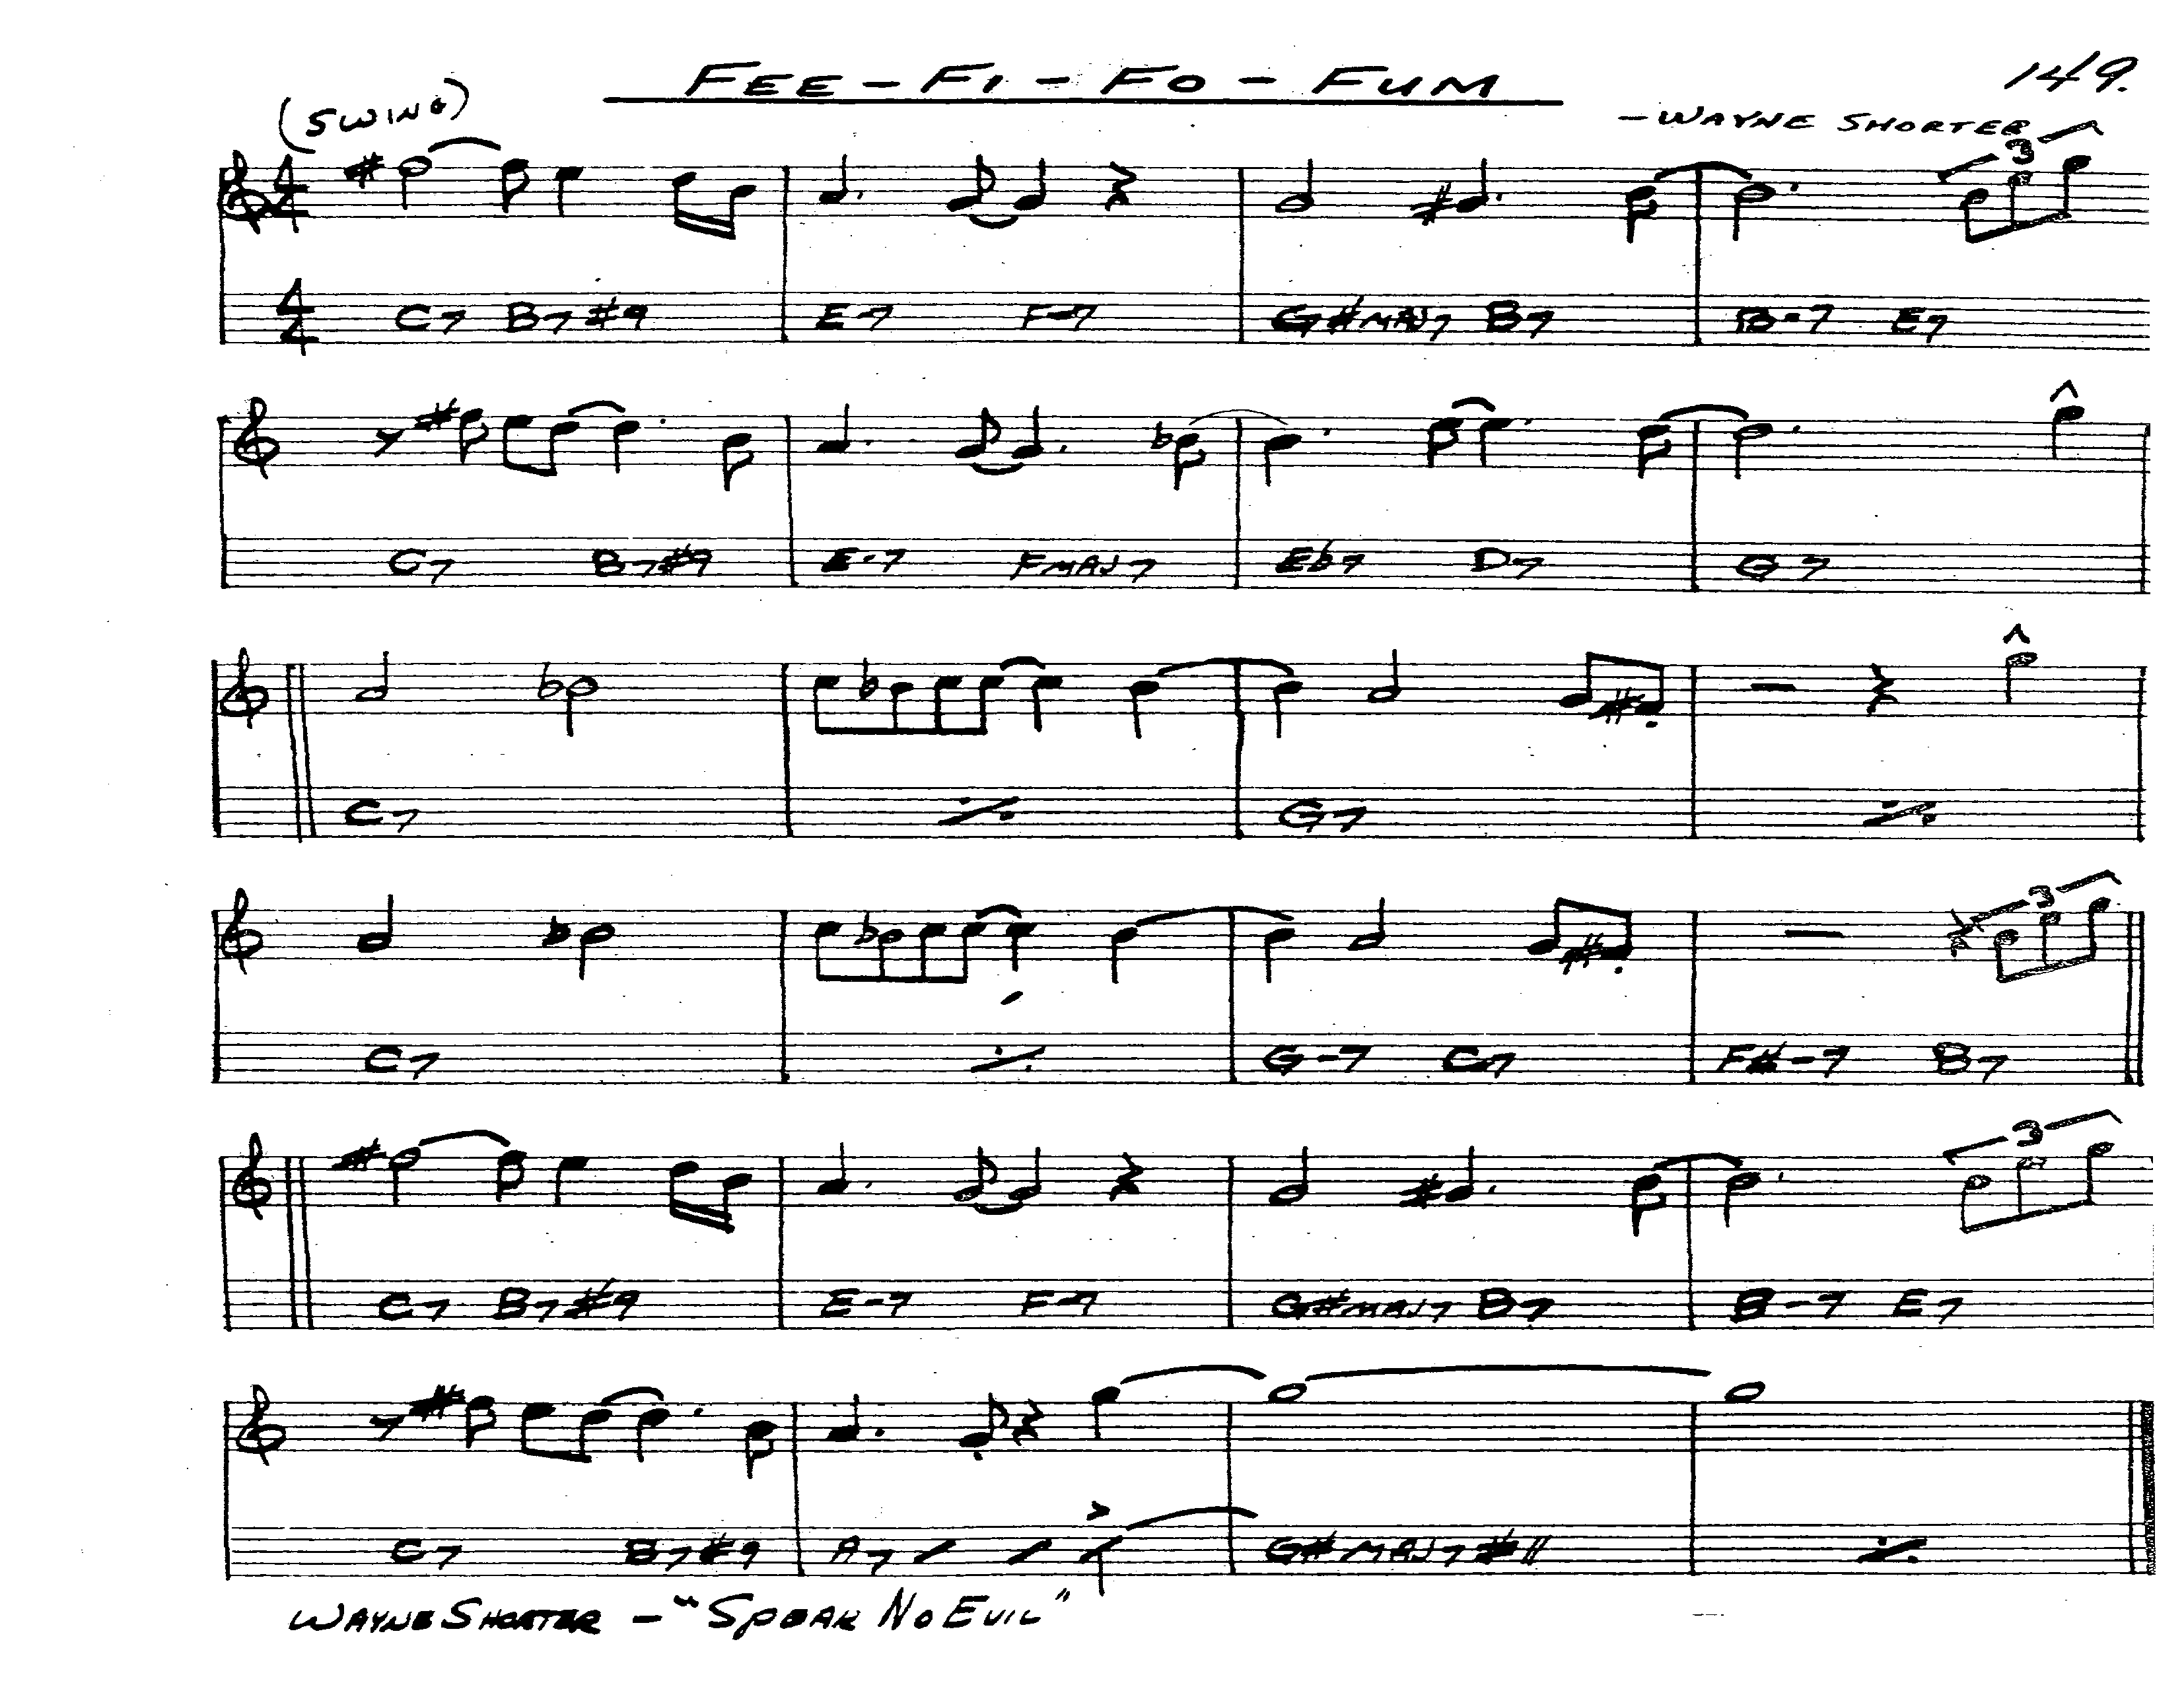 FEE-FI-FO-FUM
149.
(SWING)
-WAYNE SHORTER
3
4
4
4
4
C7 B7#9 E-7 F-7 G#MAJ7 B7 B-7 E7
C7 B7#9 E-7 FMAJ7 Eb7 D7 G7
C7 G7
3
C7 G-7 C7 F#-7 B7
3
C7 B7#9 E-7 F-7 G#MAJ7 B7 B-7 E7
C7 B7#9 A7 G#MAJ7#11
WAYNE SHORTER - "SPEAK NO EVIL"